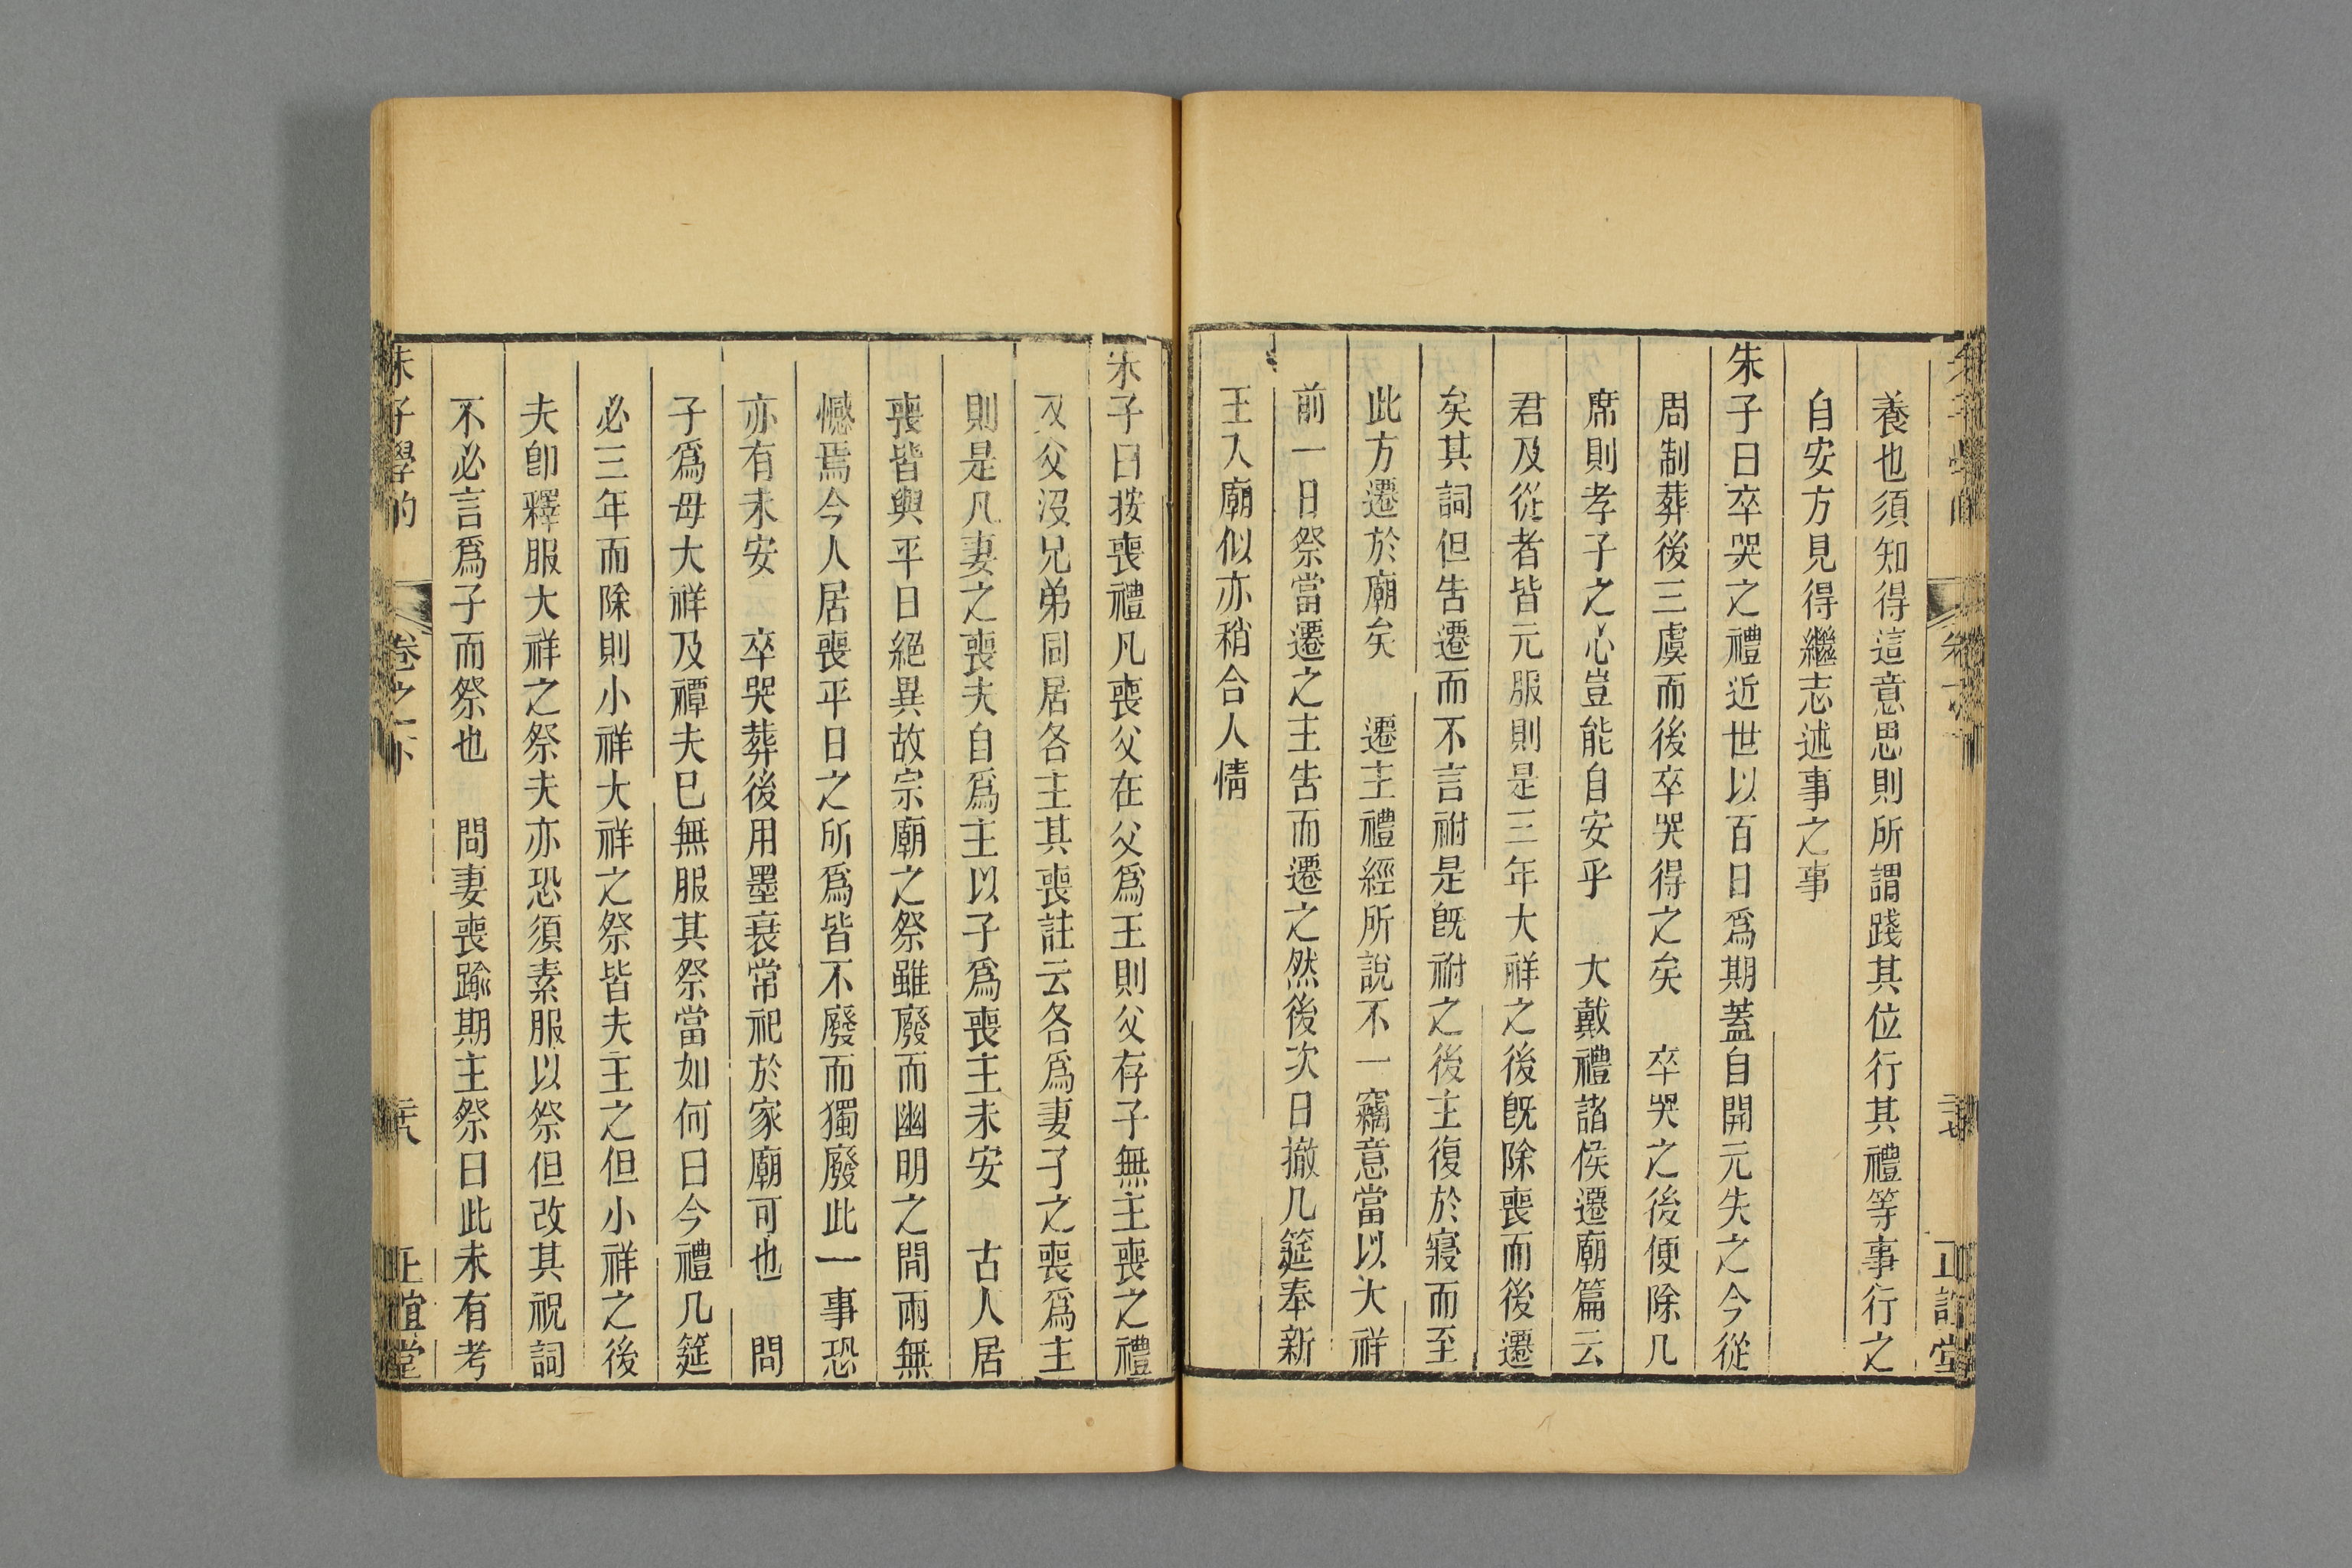 養也須知得這意思則所謂踐其位行其禮等事行之
自安方見得繼志述事之事
朱子曰卒哭之禮近世以百日爲期蓋自開元失之今從
周制葬後三虞而後卒哭得之矣　卒哭之後便除几
席則孝子之心豈能自安乎　大戴禮諸侯遷廟篇云
君及從者皆元服則是三年大祥之後旣除喪而後遷
矣其詞但告遷而不言祔是旣祔之後主復於寢而至
此方遷於廟矣　遷主禮經所說不一竊意當以大祥
前一日祭當遷之主告而遷之然後次日撤几筵奉新
主入廟似亦稍合人情
朱子曰按喪禮凡喪父在父爲主則父存子無主喪之禮
又父沒兄弟同居各主其喪註云各爲妻子之喪爲主
則是凡妻之喪夫自爲主以子爲喪主未安　古人居
喪皆與平日絕異故宗廟之祭雖廢而幽明之間兩無
憾焉今人居喪平日之所爲皆不廢而獨廢此一事恐
亦有未安　卒哭葬後用墨衰常祀於家廟可也　問
子爲母大祥及禫夫已無服其祭當如何曰今禮几筵
必三年而除則小祥大祥之祭皆夫主之但小祥之後
夫卽釋服大祥之祭夫亦恐須素服以祭但改其祝詞
不必言爲子而祭也　問妻喪踰期主祭曰此未有考
朱子學的　卷之下　二十八　正誼堂